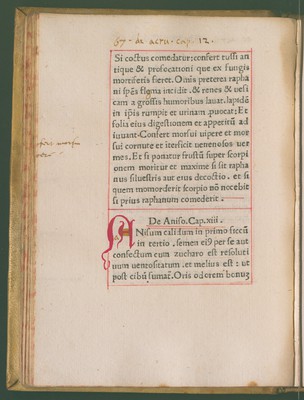 Si coctus comedatur: confert tussi an
tique & prefocationi que ex fungis
mortiferis fieret. Oīnis preterea rapha
ni spēs flgma incidit. & renes & vesi
cam a grossis humoribus lauat. lapidē
in ip̄is rumpit et urinam ꝓuocat: Et
folia eius digestionem et appetitū ad
iuuant. Confert morsui vipere et mor
sui cornute et iterficit uenenosos ver
mes. Et si ponatur frustū super scorpi
onem moritur et maxime si sit rapha
nus siluestris aut eius decoctio. et si
quem momorderit scorpio nō nocebit
si prius raphanum comederit.
De Aniso. Cap. xiii.
ANisum calidum in primo siccū
in tertio. semen ei9 per se aut
confectum cum zucharo est resoluti
uum uentositatum. et melius est: ut
post cibū sumat. Oris odorem bonuȝ